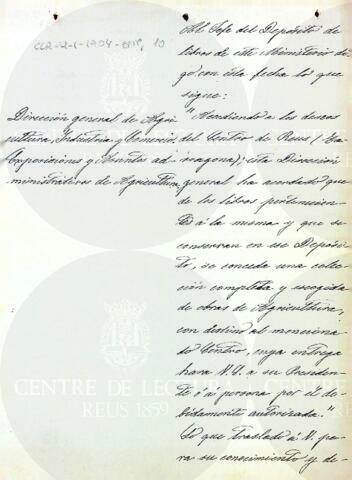 CLR-2-1-1904-811, 10
Al Jefe del Depósito de
libros de este Ministerio di-
go con esta fecha lo que
sigue:
Dirección general de Agri-
cultura, Industria y Comercio.
Exposiciones y Asuntos ad-
ministrativos de Agricultura
"Accediendo a los deseos
del Centro de Reus (Ta-
rragona); esta Dirección
general ha acordado que
de los libros pertenecien-
tes á la misma y que se
conservan en ese Depósi-
to, se conceda una colec-
ción completa y escogida
de obras de Agricultura,
con destino al menciona-
do Centro, cuya entrega
hará V. á su Presiden-
te ó á persona por él de-
bidamente autorizada."
Lo que traslado á V. pa-
ra su conocimiento y de-
CENTRE DE LECTURA
REUS 1859
CENTRE DE LECTURA
REUS 1859